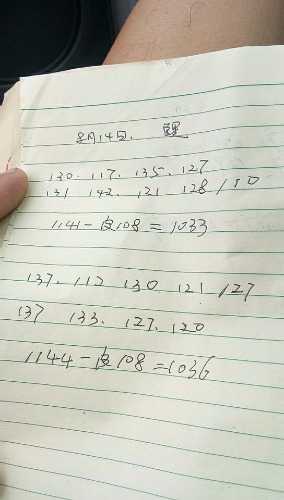 8月14日.
130. 117. 135. 127
131 142. 121 128 110
1141-皮108=1033
137. 112 130 121 127
137 133. 127. 120
1144-皮108=1036